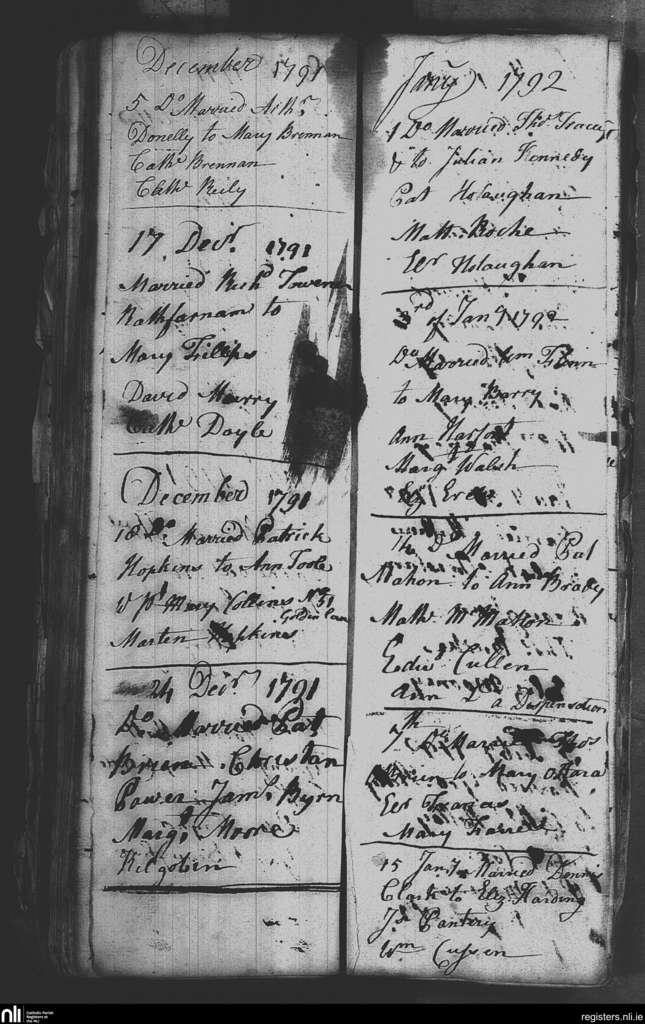 December 1791
5 Do Married Arthr
Donelly to Mary Brennan
Cathe Brennan
Cathe Reily
17 Decr. 1791
Married Richd
Rathfarnam to
Mary Fillips
David Murry
Cathe Doyle
December 1791
18 Do Married Patrick
Hopkins to Ann Toole
Mary Collins No 51
Golden Lane
Marten Hopkins
24 Decr 1791
Do Married Pat
Brien Christan
Power Jams Byrn
Margt Moore
Kilgobin
Jany 1792
1 Do Married Thos Tracey
to Julian Kennedy
Pat Holaughan
Matt Roche
Elr Holaughan
3rd of Jany 1792
Do Married Wm
to Mary Barry
Ann
Marg Walsh
14 Do Married Pat
Mahon to Ann Brady
Mathw McMahon
Edwd Cullen
Ann Do a Dispensation
7th Do Married Thos
to Mary oHara
Elr Thomas
Mary Farrell
15 Jany Married Dennis
Clark to Eliz Harding
Js Pantery
Wm Cussen
nli
Catholic Parish
Registers at
the NLI
registers.nli.ie